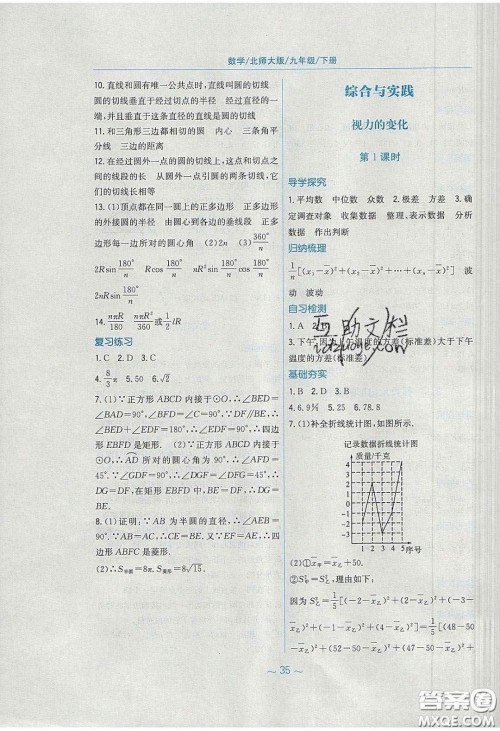 数学/北师大版/九年级/下册
10. 直线和圆有唯一公共点时,直线叫圆的切线
圆的切线垂直于经过切点的半径　经过直径的一
端,并且垂直于这条直径的直线是圆的切线
11. 和三角形三边都相切的圆　内心　三条角平
分线　三边的距离
12. 在经过圆外一点的圆的切线上,这点和切点之
间的线段的长　从圆外一点引圆的两条切线,它
们的切线长相等
13. (1)顶点都在同一圆上的正多边形　正多边形
的外接圆的半径　由圆心向各边的垂线段　正多
边形每一边所对的圆心角　(2)2n　360°/n
2Rsin 180°/n　Rcos 180°/n　nR²sin 180°/n cos 180°/n
2nRsin 180°/n
14. nπR/180　nπR²/360或1/2 lR
复习练习
1. C　2. D　3. C
4. 8/3 π　5. 50　6. √2
7. (1)∵正方形ABCD内接于⊙O,∴∠BED=
∠BAD=90°,∠BFD=∠BCD=90°.又∵DF//
BE,∴∠EDF+∠BED=180°,∴∠EDF=90°,∴四边
形EBFD是矩形. (2)∵正方形ABCD内接于
⊙O,∴AD所对的圆心角为90°,∴∠AFD=45°.
又∵∠GDF=90°,∴∠DGF=∠DFC=45°,∴
DG=DF,在矩形EBFD中,BE=DF,∴BE=
DG.
8. (1)证明:∵AB为半圆的直径,∴∠AEB=
90°.∵AB=AC,∴CE=BE.又∵EF=AE,∴四
边形ABFC是菱形.
(2)∴S半圆=8π,S菱形=8√15.
综合与实践
视力的变化
第1课时
导学探究
1. 平均数　中位数　众数　2. 极差　方差　3. 确
定调查对象　收集数据　整理、表示数据　分析
数据　作出判断
归纳梳理
1/n[(x₁-x̄)²+(x₂-x̄)²+…+(xₙ-x̄)²]　波
动　波动
自习检测
1. A
3. 下午,因为上午温度的方差(标准差)大于下午
温度的方差(标准差)
基础夯实
1. B　2. D　3. B
4. 6. 9½　5. 25　6. 78.8
7. (1)补全折线统计图,如图所示.
记录数据折线统计图
质量/千克
4
3
2
1
0
-1
-2
-3
-4
1 2 3 4 5 序号
(2)①x̄甲=x̄乙+50.
②S²甲=S²乙,理由如下:
因为S²乙=1/5[(-2-x̄乙)²+(2-x̄乙)²+(-3-
x̄乙)²+(-1-x̄乙)²+(4-x̄乙)²]=1/5[(48-50
-x̄乙)²+(52-50-x̄乙)²+(47-50-x̄乙)²+
~ 35 ~
答案圈
MXQE.COM